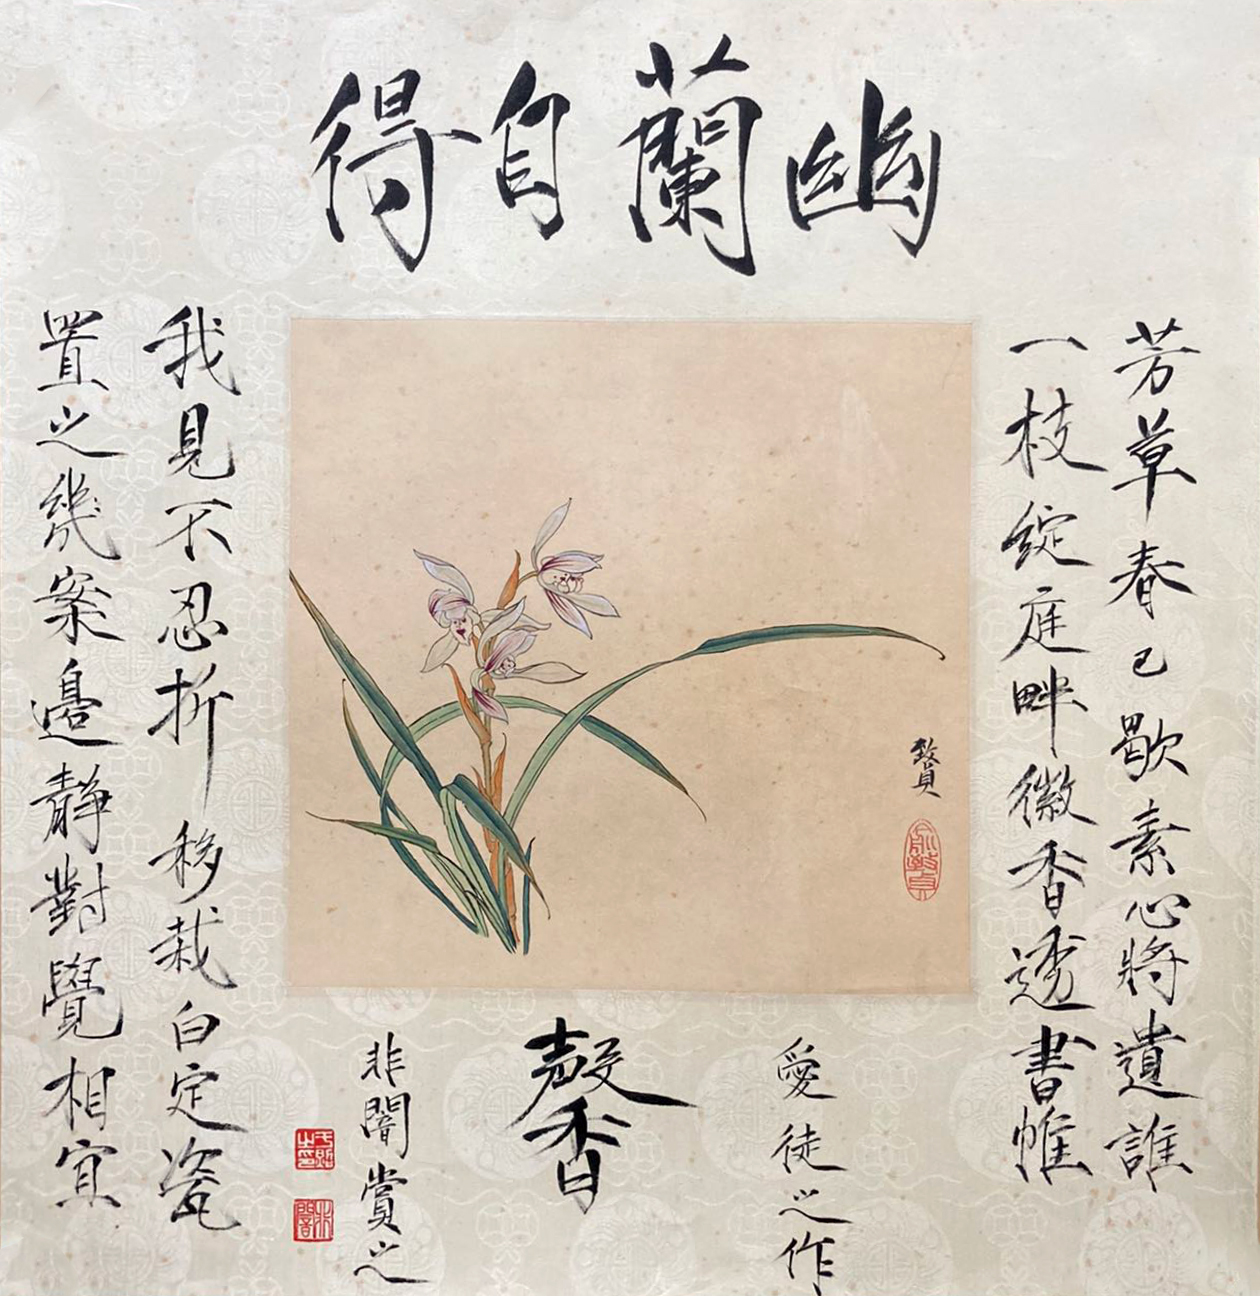 幽蘭自得
芳草春已歇素心將遺誰
一枝綻庭畔微香透書帷
我見不忍折移栽白定瓷
置之幾案邊靜對覺相宜
贅
俞致貞
愛徒之作
馨
非闇賞之
非闇